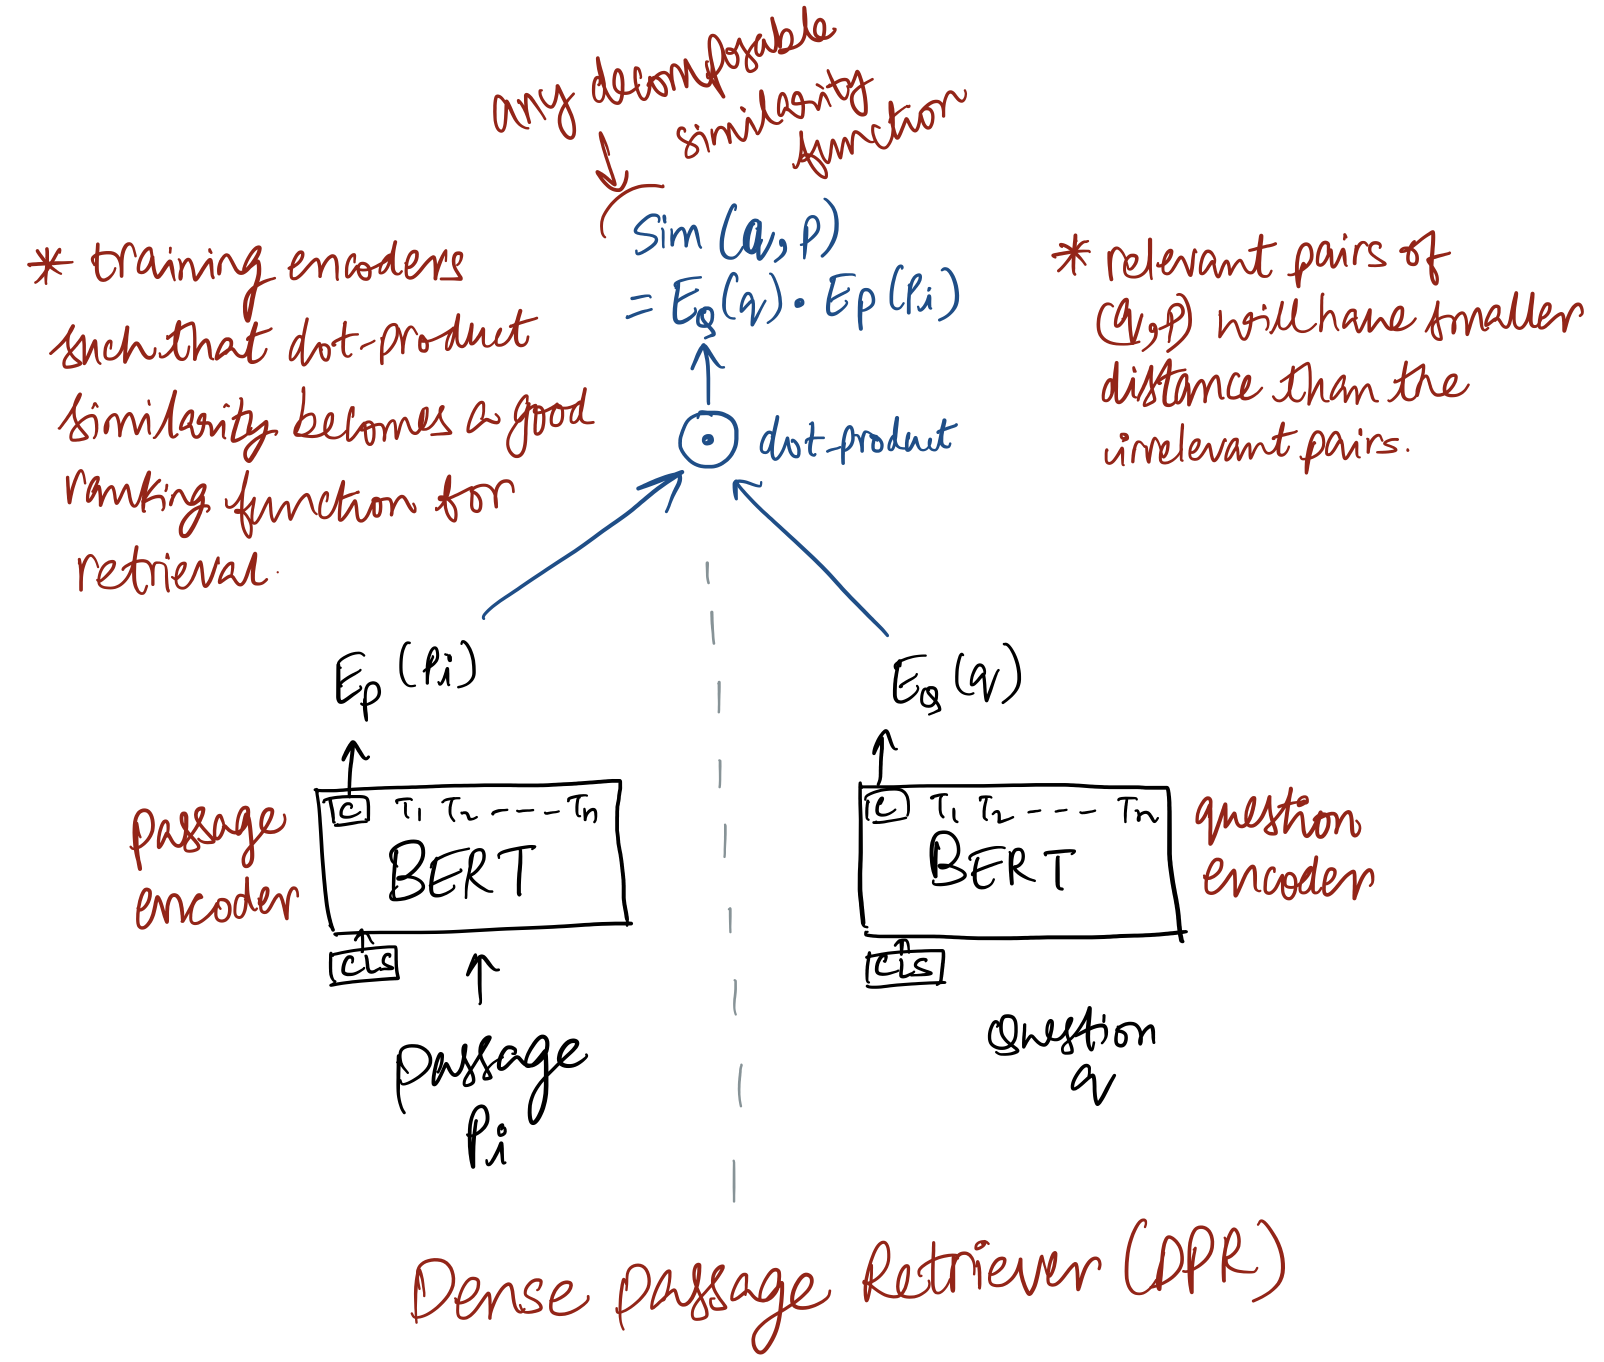 any decomposable
similarity
function
Sim (q, p)
= E_Q(q) · E_P(Pi)
* training encoders
such that dot-product
similarity becomes a good
ranking function for
retrieval.
* relevant pairs of
(q,p) will have smaller
distance than the
irrelevant pairs.
dot-product
E_P (Pi)
E_Q (q)
passage
encoder
C T1 T2 ----- Tn
BERT
CLS
passage
Pi
C T1 T2 ---- Tn
BERT
CLS
question
encoder
Question
q
Dense Passage Retriever (DPR)